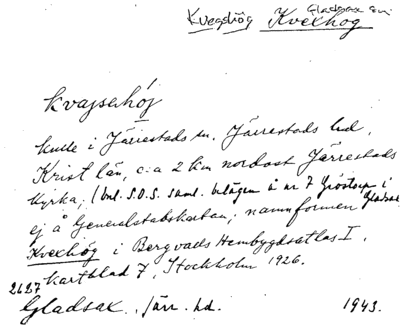 Kvegshög Kvexhög Gladsax sn
kvajsehöj
kulle i Järrestads sn. Järrestads hd,
Krist län, c:a 2 km nordost Järrestads
kyrka, (enl. S.O.S. saml. belägen å nr 7 Gröstorp i Gladsax
ej å Generalstabskartan; namnformen
Kvexhög i Bergvads Hembygdsatlas I,
kartblad 7, Stockholm 1926.
2687
Gladsax. Järr. hd. 1943.